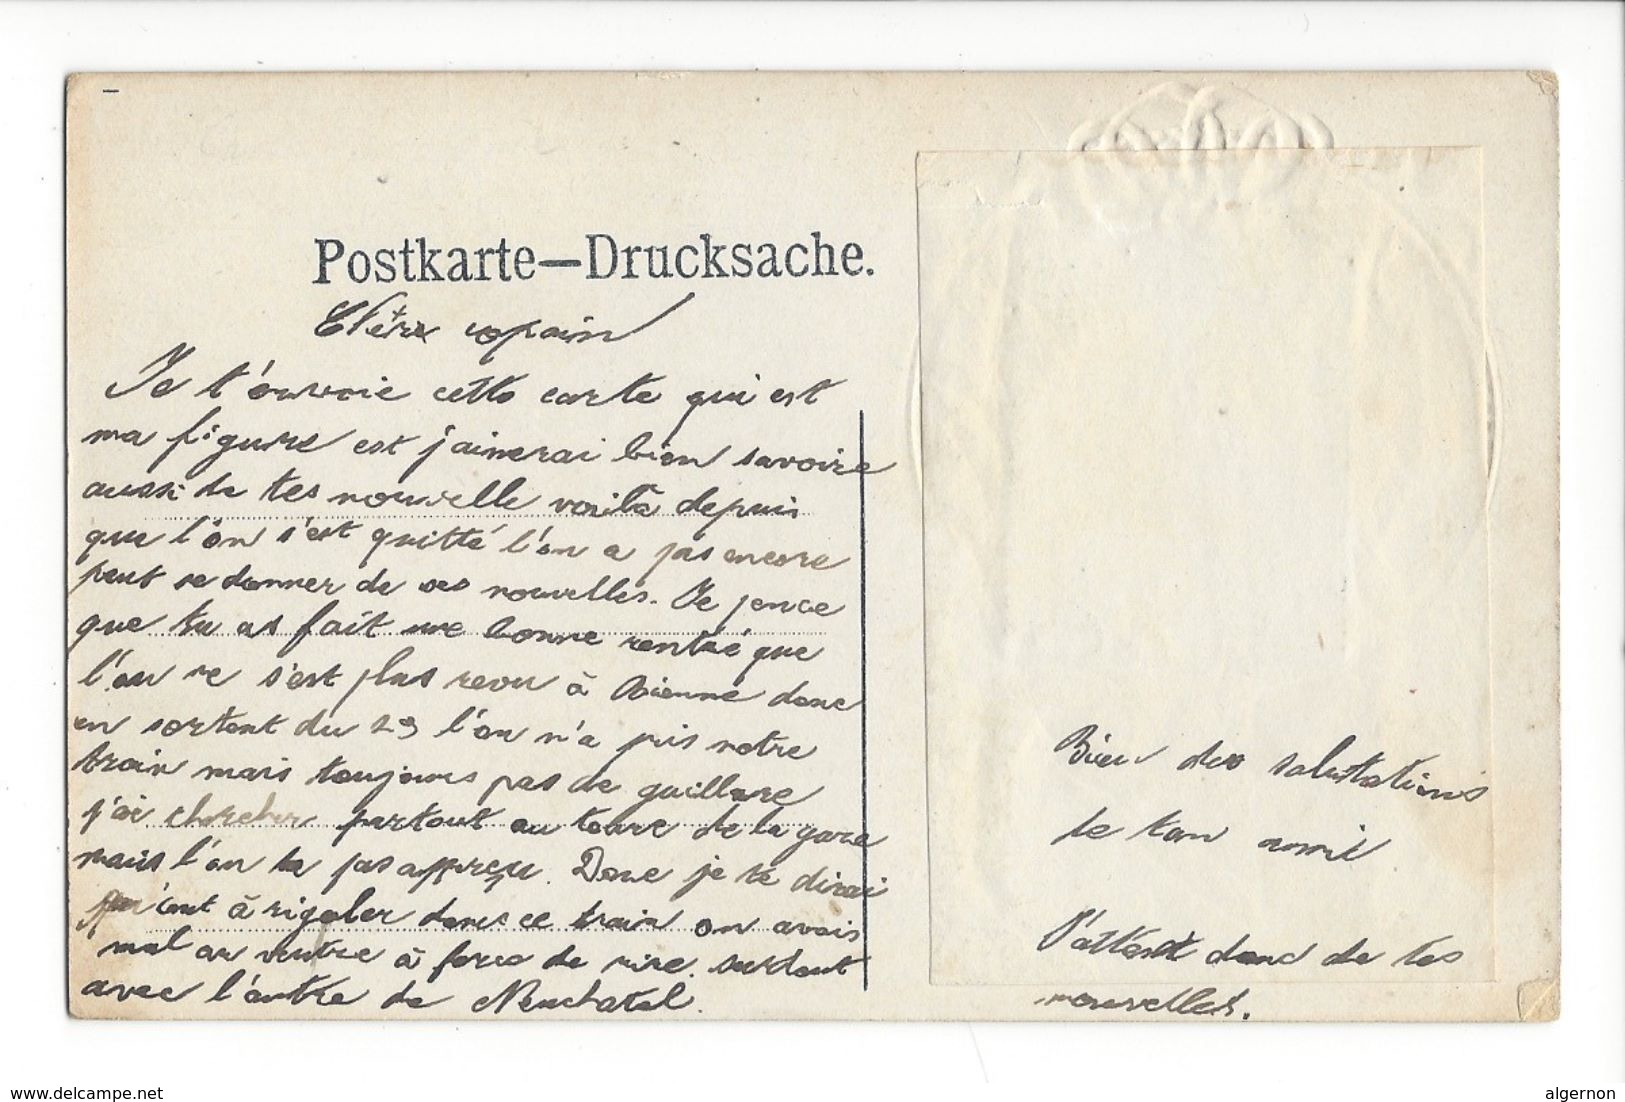 Postkarte—Drucksache.
Chère copain
Je t'envoie cette carte qui est
ma figure est j'aimerai bien savoire
aussi de tes nouvelle voila depuis
que l'on s'est quitté l'on a pas encore
peut se donner de ses nouvelles. Je pence
que tu as fait une bonne rentré que
l'on ne s'est plus revu à Bienne donc
en sortent du l'on n'a pris notre
train mais toujours pas de guillare
j'ai chercher partout au toure de la gare
mais l'on la pas apperçu. Donc je te dirai
à rigoler dans ce train on avais
mal au ventre à force de rire. surtout
avec l'autre de Neuchatel.
Bien des salutations
de ton ami
J'attent donc de tes
nouvelles.
delcampe.net
algernon